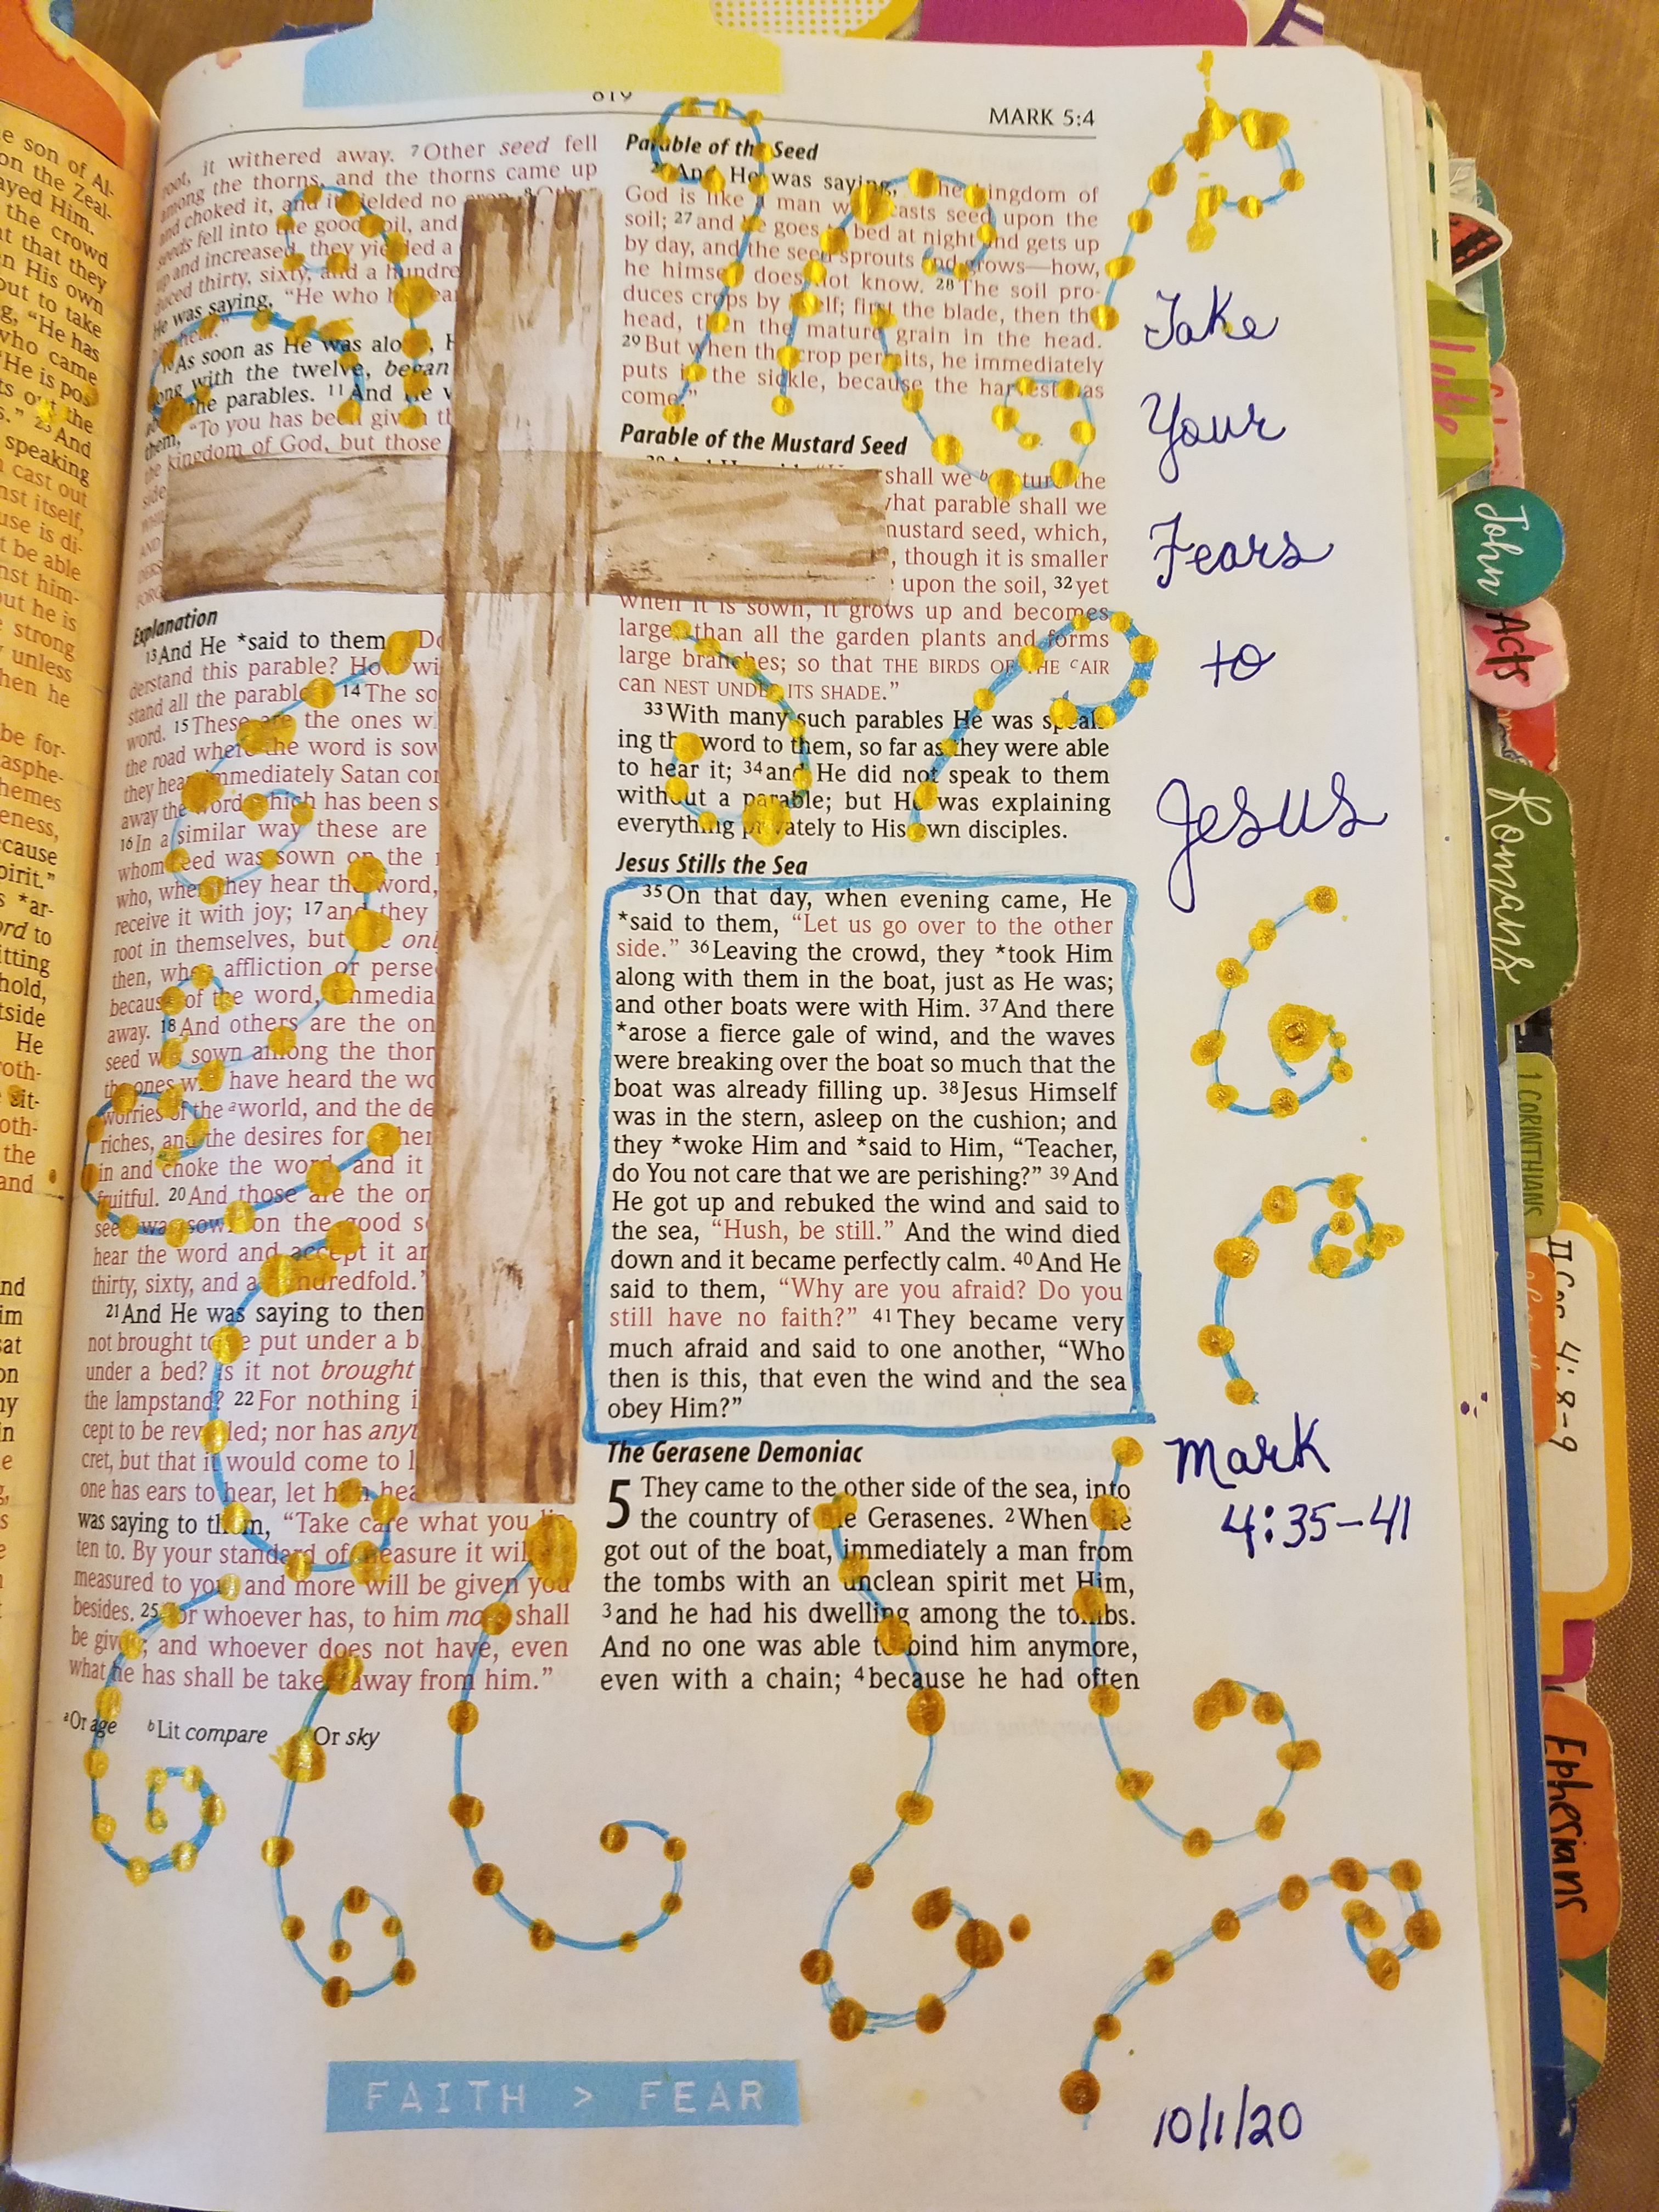 e son of Al-
on the Zeal-
ayed Him.
the crowd
at that they
n His own
out to take
g, "He has
who came
"He is pos
the
23 And
speaking
cast out
nst itself,
use is di-
t be able
nst him-
out he is
strong
unless
hen he
be for-
asphe-
hemes
eness,
cause
pirit."
*ar-
ord to
itting
hold,
tside
He
roth-
sit-
oth-
the
and
819
MARK 5:4
root, it withered away. 7 Other seed fell
among the thorns, and the thorns came up
and choked it, and it yielded no
seeds fell into the good soil, and
up and increased, they yielded a
duced thirty, sixty, and a hundre
He was saying, "He who
hear."
10 As soon as He was alo
with the twelve, began
the parables. 11 And He
them, "To you has been given th
the kingdom of God, but those
side
Explanation
13 And He *said to them, "Do
derstand this parable? How wi
stand all the parables 14 The so
word. 15 These are the ones w
the road where the word is sow
they hear, immediately Satan co
away the word which has been s
16 In a similar way these are
whom seed was sown on the
who, when they hear the word,
receive it with joy; 17 and they
root in themselves, but onl
then, when affliction or perse
because of the word, immedia
away. 18 And others are the on
seed was sown among the thor
the ones who have heard the wo
worries of the a world, and the de
riches, and the desires for other
in and choke the word, and it
fruitful. 20 And those are the on
seed was sown on the good s
hear the word and accept it an
thirty, sixty, and a hundredfold."
21 And He was saying to then
not brought to be put under a b
under a bed? Is it not brought
the lampstand? 22 For nothing i
cept to be revealed; nor has anyt
cret, but that it would come to l
one has ears to hear, let him hea
was saying to them, "Take care what you lis-
ten to. By your standard of measure it will
measured to you; and more will be given you
besides. 25 For whoever has, to him more shall
be given; and whoever does not have, even
what he has shall be taken away from him."
a Or age b Lit compare c Or sky
Parable of the Seed
26 And He was saying, "The kingdom of
God is like a man who casts seed upon the
soil; 27 and he goes to bed at night and gets up
by day, and the seed sprouts and grows—how,
he himself does not know. 28 The soil pro-
duces crops by itself; first the blade, then the
head, then the mature grain in the head.
29 But when the crop permits, he immediately
puts in the sickle, because the harvest has
come."
Parable of the Mustard Seed
shall we b picture the
what parable shall we
mustard seed, which,
, though it is smaller
upon the soil, 32 yet
when it is sown, it grows up and becomes
larger than all the garden plants and forms
large branches; so that THE BIRDS OF THE c AIR
can NEST UNDER ITS SHADE."
33 With many such parables He was speak-
ing the word to them, so far as they were able
to hear it; 34 and He did not speak to them
without a parable; but He was explaining
everything privately to His own disciples.
Jesus Stills the Sea
35 On that day, when evening came, He
*said to them, "Let us go over to the other
side." 36 Leaving the crowd, they *took Him
along with them in the boat, just as He was;
and other boats were with Him. 37 And there
*arose a fierce gale of wind, and the waves
were breaking over the boat so much that the
boat was already filling up. 38 Jesus Himself
was in the stern, asleep on the cushion; and
they *woke Him and *said to Him, "Teacher,
do You not care that we are perishing?" 39 And
He got up and rebuked the wind and said to
the sea, "Hush, be still." And the wind died
down and it became perfectly calm. 40 And He
said to them, "Why are you afraid? Do you
still have no faith?" 41 They became very
much afraid and said to one another, "Who
then is this, that even the wind and the sea
obey Him?"
The Gerasene Demoniac
5 They came to the other side of the sea, into
the country of the Gerasenes. 2 When He
got out of the boat, immediately a man from
the tombs with an unclean spirit met Him,
3 and he had his dwelling among the tombs.
And no one was able to bind him anymore,
even with a chain; 4 because he had often
Take
Your
Fears
to
Jesus
Mark
4:35-41
FAITH > FEAR
10/1/20
Luke
John
Acts
Romans
1 CORINTHIANS
II Cor 4:8-9
Ephesians